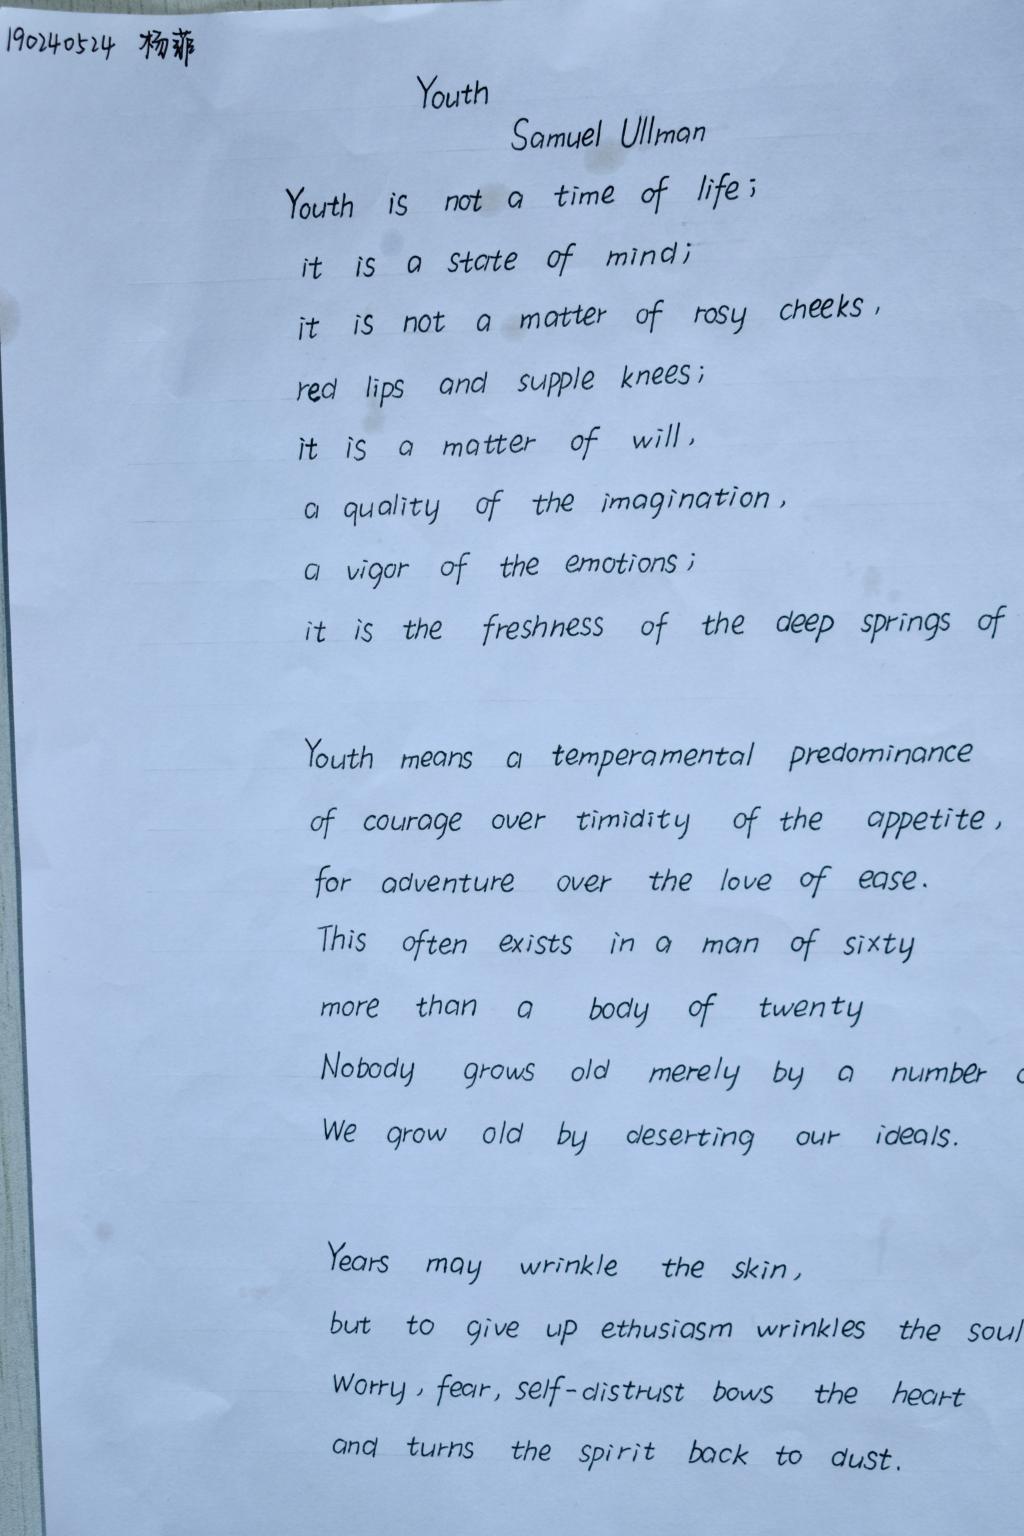 190240524 杨菲
Youth
Samuel Ullman
Youth is not a time of life;
it is a state of mind;
it is not a matter of rosy cheeks,
red lips and supple knees;
it is a matter of will,
a quality of the imagination,
a vigor of the emotions;
it is the freshness of the deep springs of
Youth means a temperamental predominance
of courage over timidity of the appetite,
for adventure over the love of ease.
This often exists in a man of sixty
more than a body of twenty
Nobody grows old merely by a number
We grow old by deserting our ideals.
Years may wrinkle the skin,
but to give up ethusiasm wrinkles the soul
Worry, fear, self-distrust bows the heart
and turns the spirit back to dust.